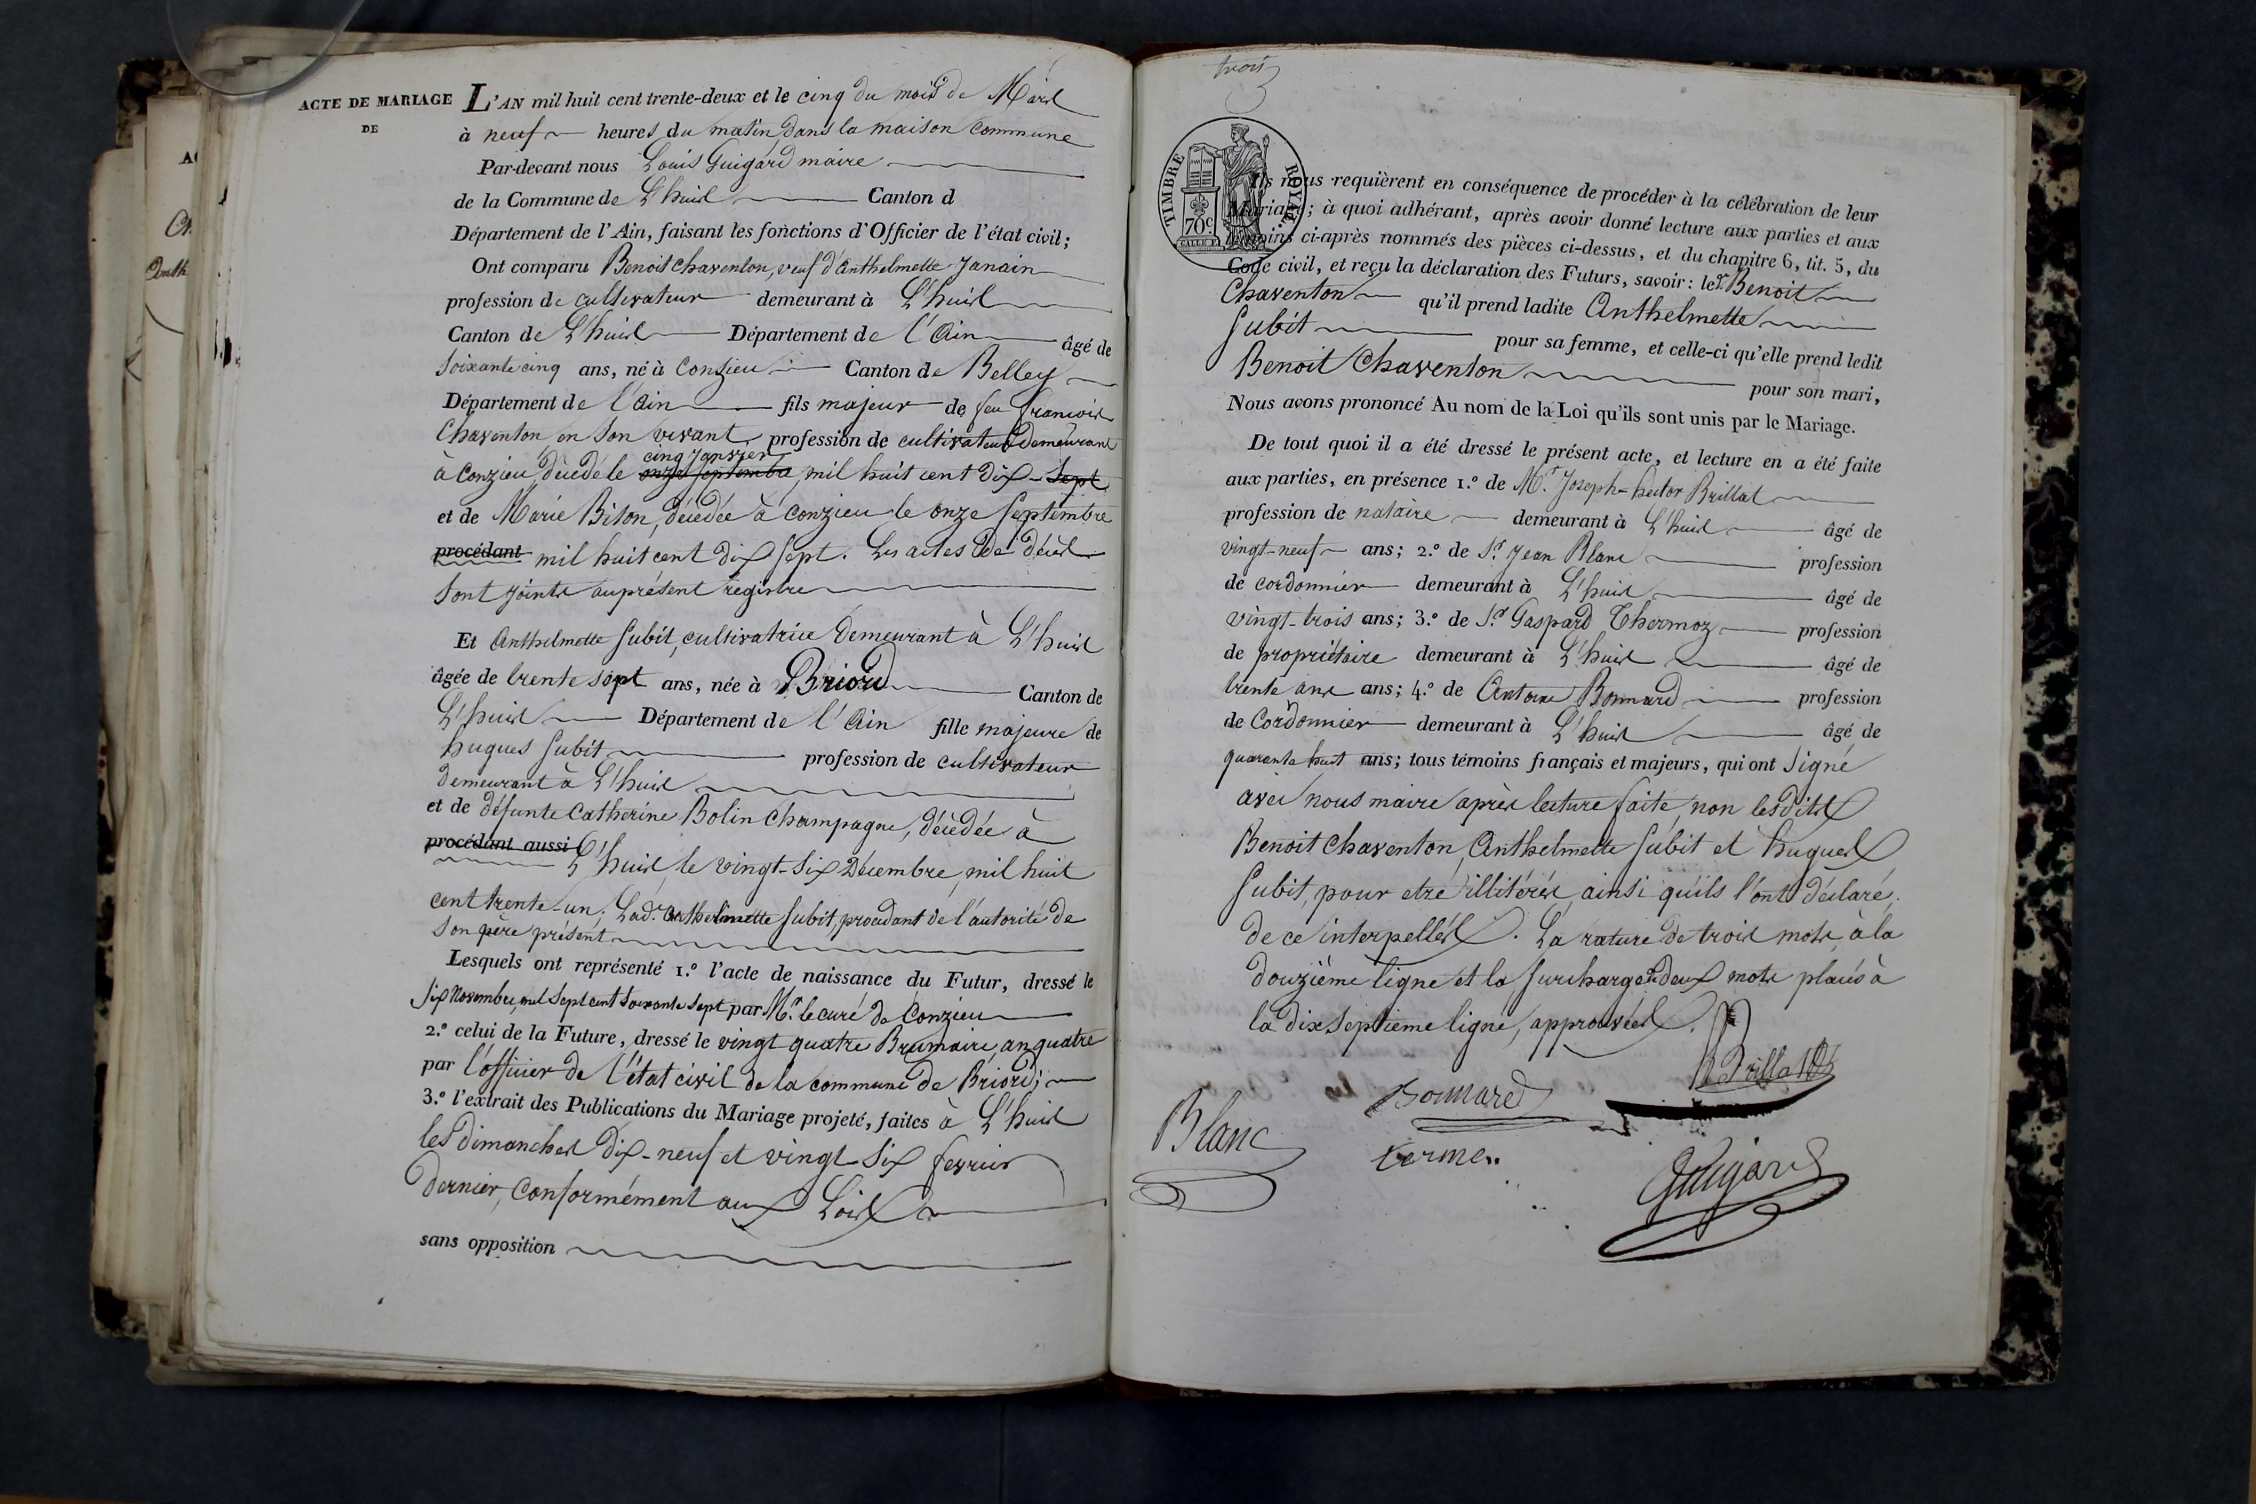 ACTE DE MARIAGE
DE
L'AN mil huit cent trente-deux et le cinq du mois de Mars
à neuf heures du matin dans la maison commune
Par-devant nous Louis Guigard maire
de la Commune de L'huis Canton d
Département de l'Ain, faisant les fonctions d'Officier de l'état civil;
Ont comparu Benoit Chaventon, veuf d'Anthelmette Janain
profession de cultivateur demeurant à L'huis
Canton de L'huis Département de l'Ain âgé de
soixante cinq ans, né à Conzieu Canton de Belley
Département de l'Ain fils majeur de feu francois
Chaventon en son vivant, profession de cultivateur demeurant
cinq janvier
à Conzieu, décédé le onze septembre, mil huit cent dix-sept
et de Marie Biton, décédée à Conzieu le onze Septembre
procédant mil huit cent dix sept. Les actes de décès
sont joints au présent registre
Et Anthelmette Subit, cultivatrice demeurant à L'huis
âgée de trente sept ans, née à Briord Canton de
L'huis Département de l'Ain fille majeure de
hugues Subit profession de cultivateur
demeurant à L'huis
et de défunte Catherine Bolin Champagne, décédée à
procédant aussi L'huis, le vingt-six Décembre, mil huit
cent trente-un; Lad. Anthelmette Subit, procédant de l'autorité de
son père présent
Lesquels ont représenté 1.º l'acte de naissance du Futur, dressé le
six Novembre, mil sept cent soixante sept par Mr. le curé de Conzieu
2.º celui de la Future, dressé le vingt quatre Brumaire, an quatre
par l'officier de l'état civil de la commune de Briord;
3.º l'extrait des Publications du Mariage projeté, faites à L'huis
les dimanches dix-neuf et vingt-six fevrier
dernier, conformément aux Lois
sans opposition
trois
TIMBRE ROYAL
70 c
Ils nous requièrent en conséquence de procéder à la célébration de leur
Mariage; à quoi adhérant, après avoir donné lecture aux parties et aux
témoins ci-après nommés des pièces ci-dessus, et du chapitre 6, tit. 5, du
Code civil, et reçu la déclaration des Futurs, savoir: led. Benoit
Chaventon qu'il prend ladite Anthelmette
Subit pour sa femme, et celle-ci qu'elle prend ledit
Benoit Chaventon pour son mari,
Nous avons prononcé Au nom de la Loi qu'ils sont unis par le Mariage.
De tout quoi il a été dressé le présent acte, et lecture en a été faite
aux parties, en présence 1.º de Mr. Joseph-hector Brillat
profession de notaire demeurant à L'huis âgé de
vingt-neuf ans; 2.º de Sr. Jean Blanc profession
de cordonnier demeurant à L'huis âgé de
vingt-trois ans; 3.º de Sr. Gaspard Thermoz profession
de propriétaire demeurant à L'huis âgé de
trente ans ans; 4.º de Antoine Bonnard profession
de Cordonnier demeurant à L'huis âgé de
quarante huit ans; tous témoins français et majeurs, qui ont signé
avec nous maire après lecture faite, non lesdits
Benoit Chaventon, Anthelmette Subit et hugues
Subit, pour etre illitérés ainsi qu'ils l'ont déclaré,
de ce interpellés. La rature de trois mots à la
douzième ligne et la surcharge de deux mots placés à
la dix septième ligne, approuvées.
Brillat
Bonnard
Blanc
termes
Guigard